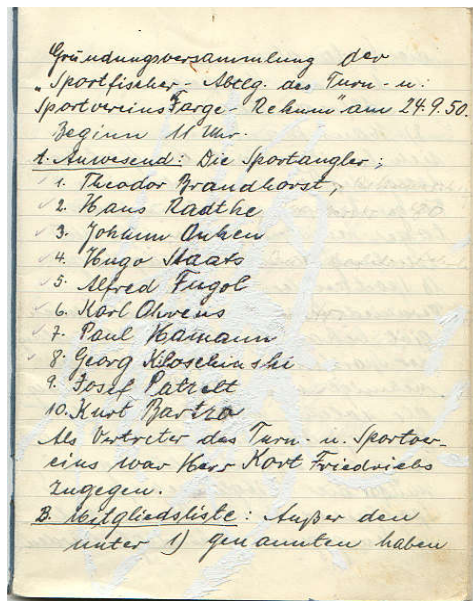 Gründungsversammlung der
"Sportfischer-Abtlg. des Turn- u.
Sportvereins Farge-Rekum" am 24.9.50.
Beginn 11 Uhr.
A. Anwesend: Die Sportangler;
1. Theodor Brandhorst,
2. Hans Radthe
3. Johann Onken
4. Hugo Staats
5. Alfred Fugol
6. Karl Ohrens
7. Paul Hamann
8. Georg Kloschinski
9. Josef Patzelt
10. Kurt Bartza
Als Vertreter des Turn- u. Sportver-
eins war Herr Kort Friedrichs
zugegen.
B. Mitgliedsliste: Außer den
unter 1) genannten haben